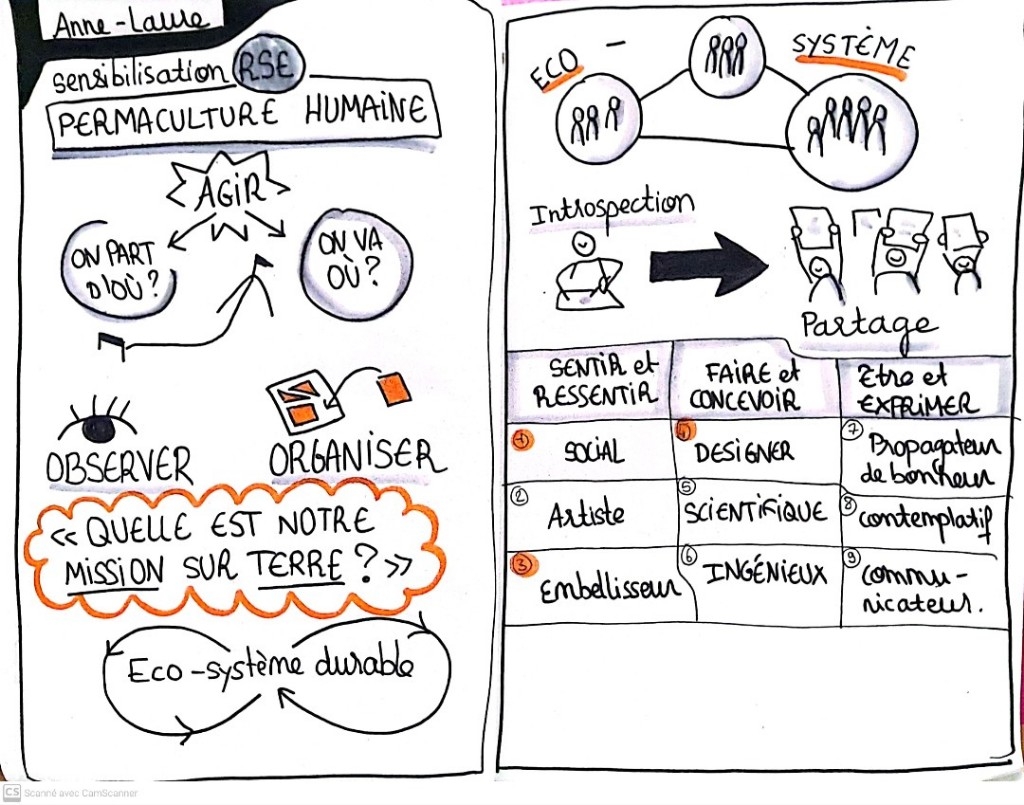 Anne-Laure
sensibilisation RSE
PERMACULTURE HUMAINE
AGIR
ON PART
D'OÙ?
ON VA
OÙ?
OBSERVER
ORGANISER
« QUELLE EST NOTRE
MISSION SUR TERRE ? »
Eco-système durable
ECO - SYSTÈME
Introspection
Partage
SENTIR et
RESSENTIR
FAIRE et
CONCEVOIR
Etre et
EXPRIMER
1 SOCIAL
4 DESIGNER
7 Propagateur
de bonheur
2 Artiste
5 SCIENTIFIQUE
8 contemplatif
3 Embellisseur
6 INGÉNIEUX
9 commu-
nicateur.
CS Scanné avec CamScanner